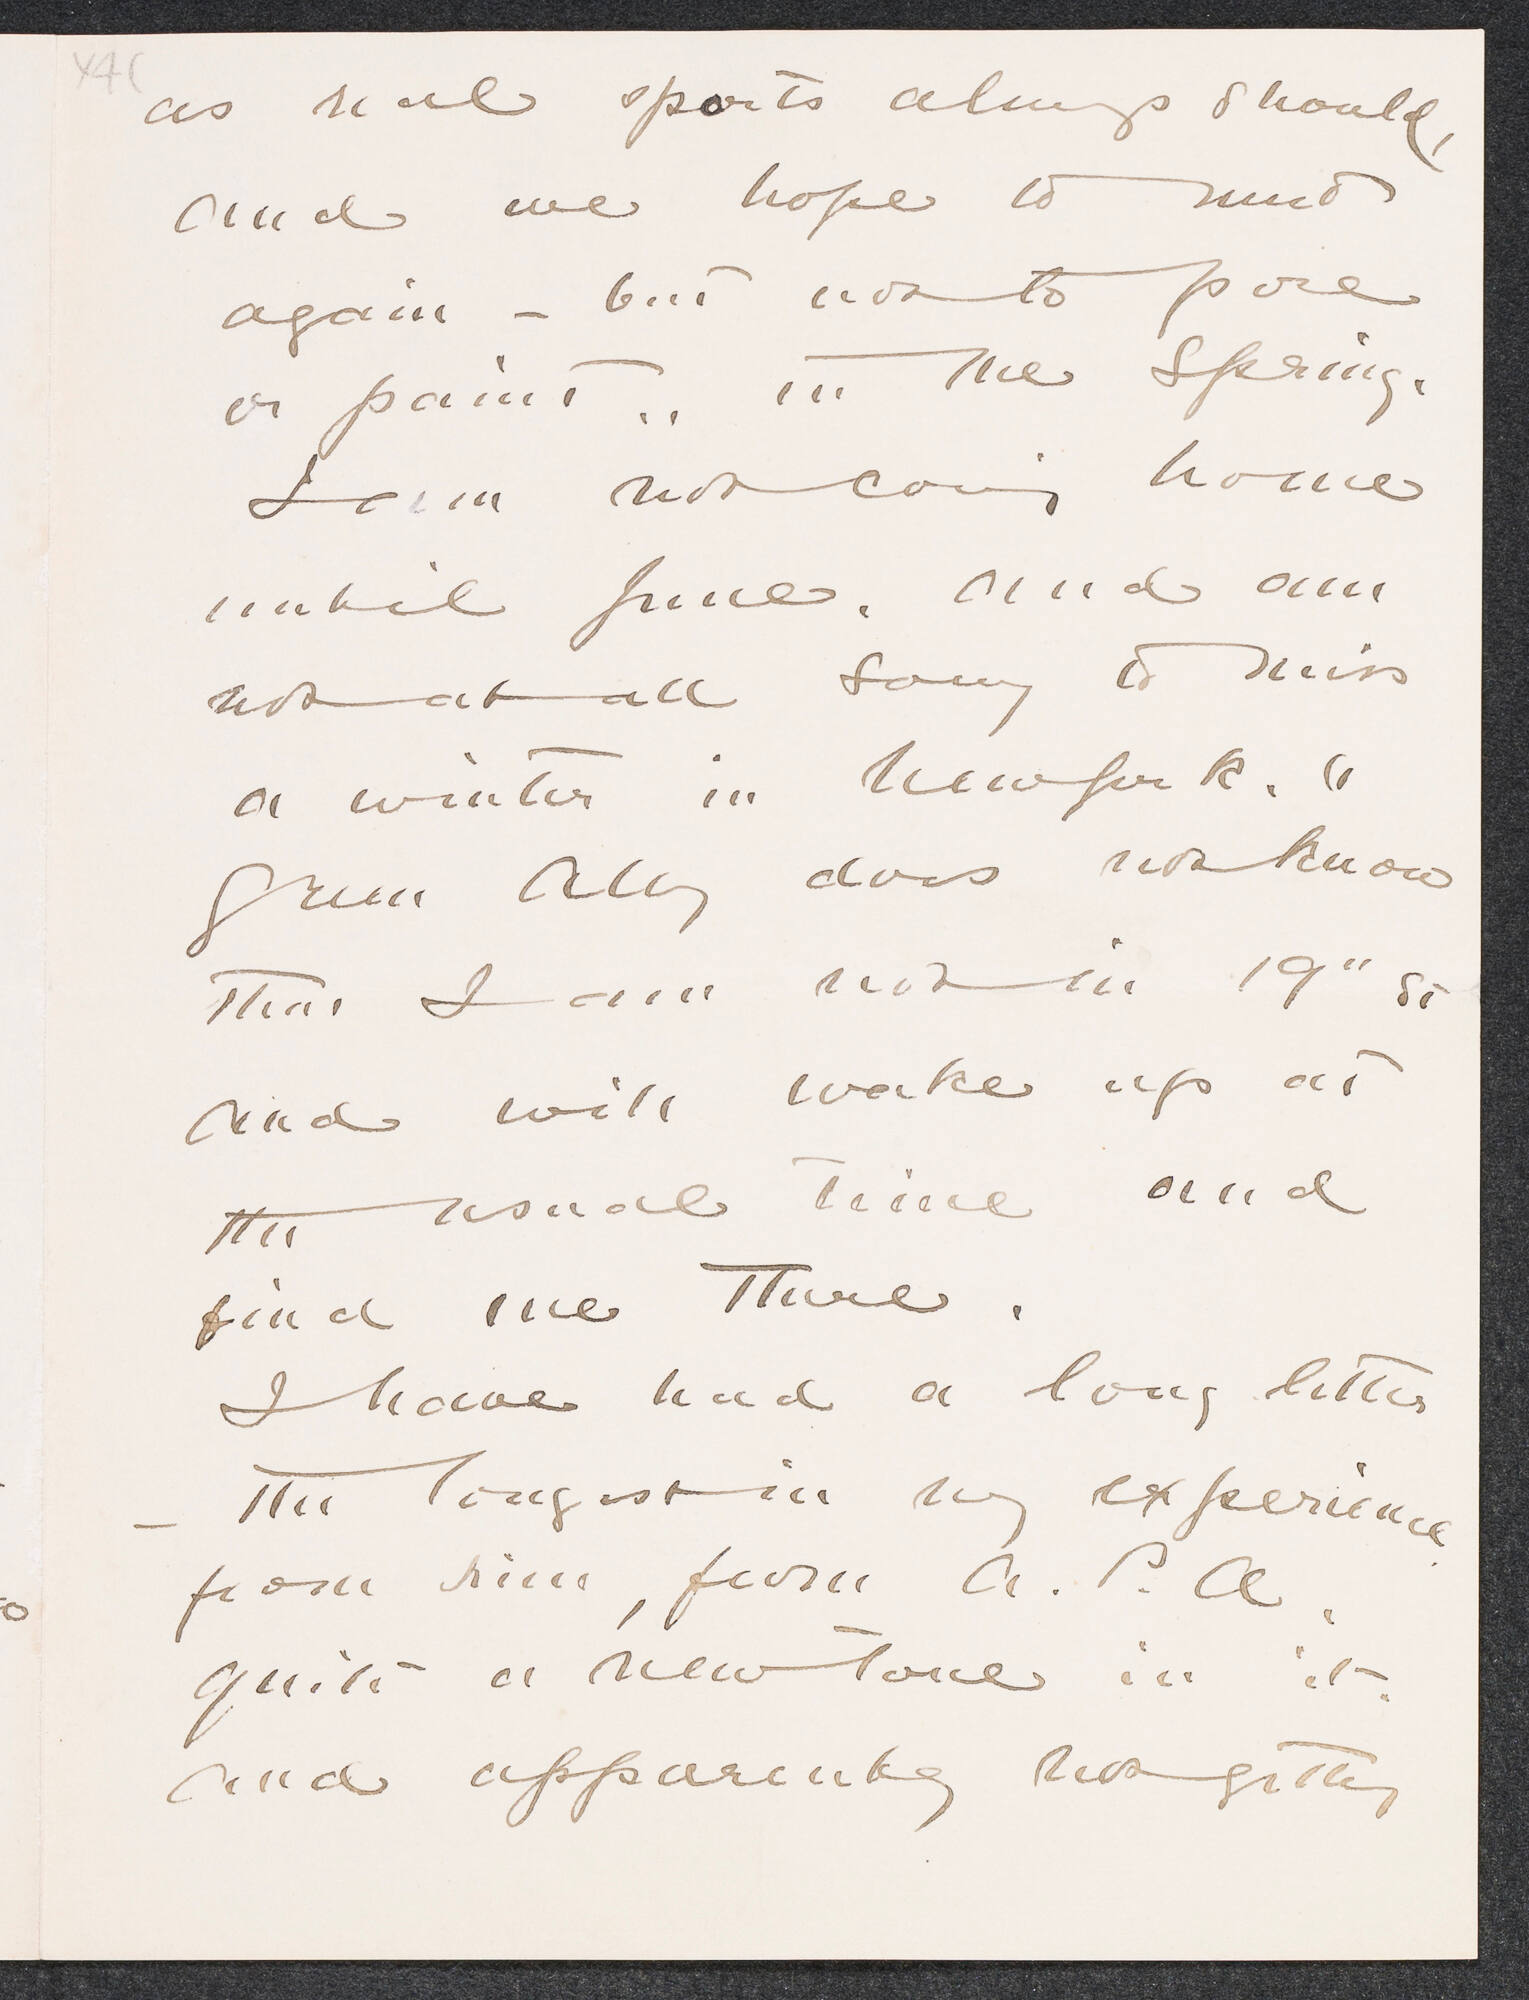 as real sports always should,
and we hope to meet
again – but not to pose
or paint .. in the Spring.
I am not coming home
until June. and am
not at all sorry to miss
a winter in New York. "
Grim Ally does not know
that I am not in 19" St
and will wake up at
the usual time and
find me there.
I have had a long letter
– the longest in my experience
from him, from A. P. A.
quite a new tone in it.
and apparently not getting